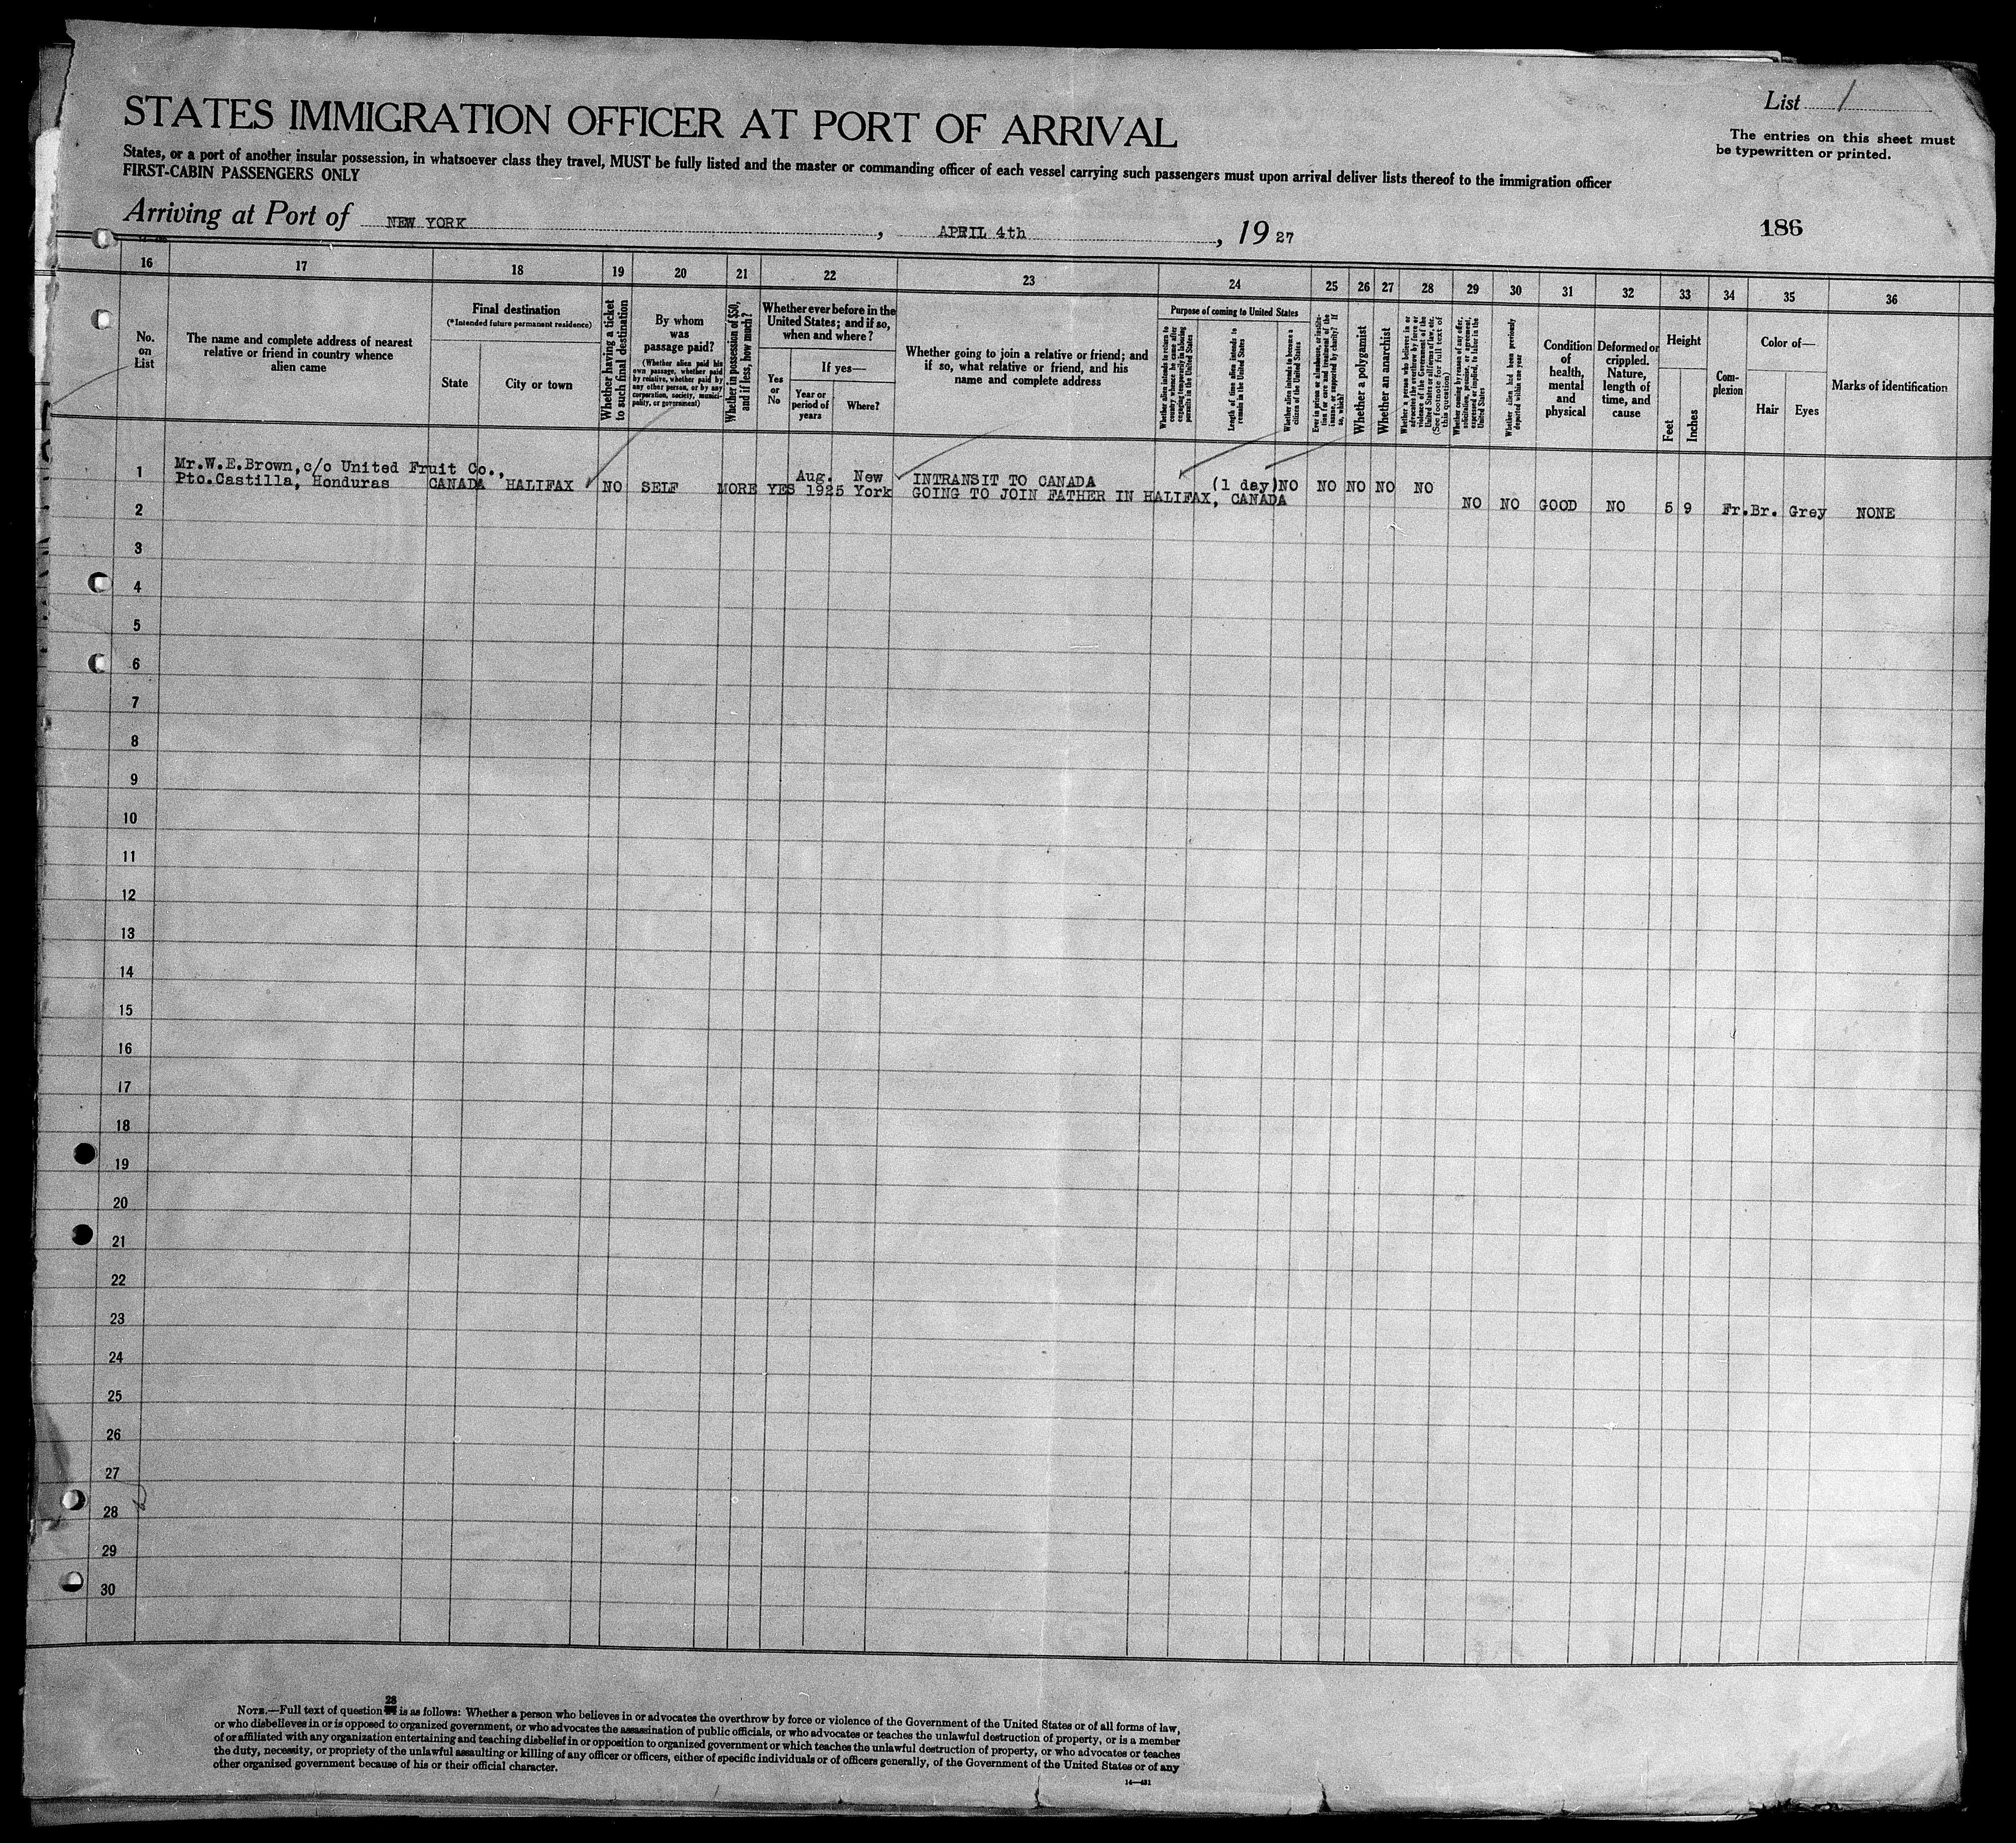 List 1
STATES IMMIGRATION OFFICER AT PORT OF ARRIVAL
The entries on this sheet must
be typewritten or printed.
States, or a port of another insular possession, in whatsoever class they travel, MUST be fully listed and the master or commanding officer of each vessel carrying such passengers must upon arrival deliver lists thereof to the immigration officer
FIRST-CABIN PASSENGERS ONLY
Arriving at Port of NEW YORK, APRIL 4th, 1927
186
16 17 18 19 20 21 22 23 24 25 26 27 28 29 30 31 32 33 34 35 36
No.
on
List
The name and complete address of nearest
relative or friend in country whence
alien came
Final destination
(*Intended future permanent residence)
State
City or town
Whether having a ticket
to such final destination
By whom
was
passage paid?
(Whether alien paid his
own passage, whether paid
by relative, whether paid by
any other person, or by any
corporation, society, munici-
pality, or government)
Whether in possession of $50,
and if less, how much?
Whether ever before in the
United States; and if so,
when and where?
Yes
or
No
If yes—
Year or
period of
years
Where?
Whether going to join a relative or friend; and
if so, what relative or friend, and his
name and complete address
Purpose of coming to United States
Whether alien intends to return to
country whence he came after
engaging temporarily in laboring
pursuits in the United States
Length of time alien intends to
remain in the United States
Whether alien intends to become a
citizen of the United States
Ever in prison or almshouse, or institu-
tion for care and treatment of the
insane, or supported by charity? If
so, which?
Whether a polygamist
Whether an anarchist
Whether a person who believes in or
advocates the overthrow by force or
violence of the Government of the
United States or all forms of law, etc.
(See footnote for full text of
this question)
Whether coming by reason of any offer,
solicitation, promise, or agreement,
expressed or implied, to labor in the
United States
Whether alien had been previously
deported within one year
Condition
of
health,
mental
and
physical
Deformed or
crippled.
Nature,
length of
time, and
cause
Height
Feet
Inches
Com-
plexion
Color of—
Hair
Eyes
Marks of identification
1 Mr.W.E.Brown,c/o United Fruit Co.,
Pto.Castilla, Honduras CANADA HALIFAX NO SELF MORE YES Aug. 1925 New York INTRANSIT TO CANADA (1 day) NO NO NO NO NO
GOING TO JOIN FATHER IN HALIFAX, CANADA
NO NO GOOD NO 5 9 Fr. Br. Grey NONE
2
3
4
5
6
7
8
9
10
11
12
13
14
15
16
17
18
19
20
21
22
23
24
25
26
27
28
29
30
28
NOTE.—Full text of question is as follows: Whether a person who believes in or advocates the overthrow by force or violence of the Government of the United States or of all forms of law,
or who disbelieves in or is opposed to organized government, or who advocates the assassination of public officials, or who advocates or teaches the unlawful destruction of property, or is a member
of or affiliated with any organization entertaining and teaching disbelief in or opposition to organized government or which teaches the unlawful destruction of property, or who advocates or teaches
the duty, necessity, or propriety of the unlawful assaulting or killing of any officer or officers, either of specific individuals or of officers generally, of the Government of the United States or of any
other organized government because of his or their official character.
14—431